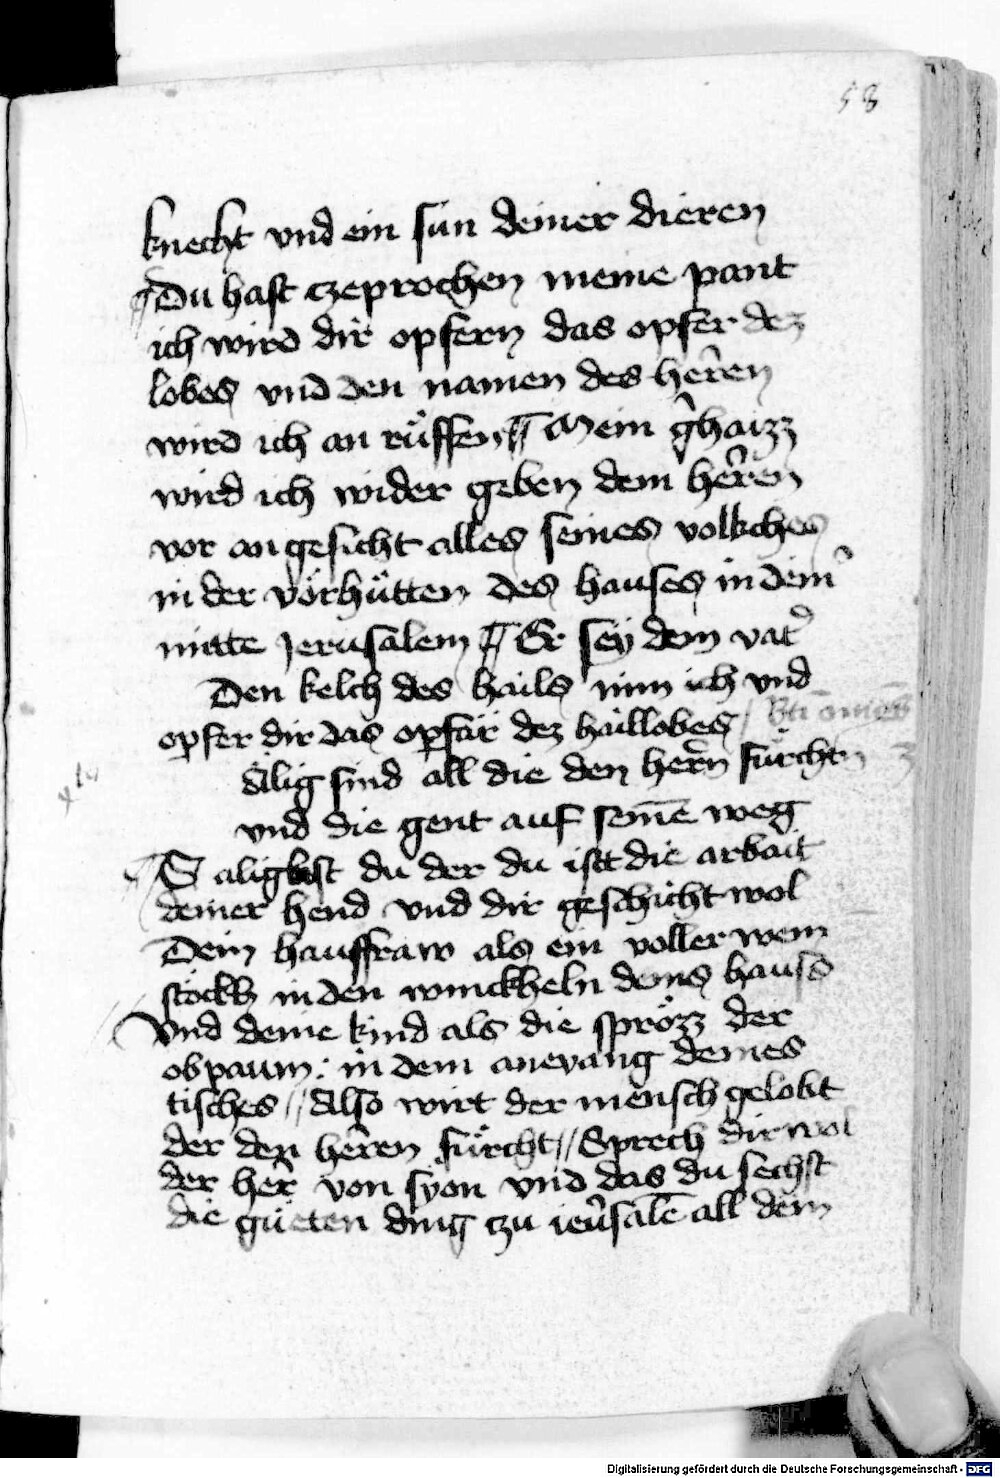 58
knecht vnd ein sun deiner dieren
¶ Du hast czeprochen meine pant
ich wird dir opfern das opfer dez
lobes vnd den namen des herren
wird ich an rüffen ¶ Mein ghaizz
wird ich wider geben dem herren
vor angesicht alles seines volkches
in der vorhütten des hauses in dein
mitte Jerusalem ¶ Er sey dem vat
Den kelch des hails nim ich vnd
opfer dir das opfär dez haillobes / Bti omnes
älig sind all die den hern fürchtn
vnd die gent auf seinē weg
¶ Salig bist du der du isst die arbait
deiner hend vnd dir geschicht wol
Dein hausfraw als ein voller wein
stockh in den winckheln deins hauss
Vnd deine kind als die sprözz der
obpaum : in dem anevang deines
tisches // Also wirt der mensch gelobt
der den herren fürcht // Sprech dir wol
der her von syon vnd das du sechst
die güeten ding czu ierusalē all dein
Digitalisierung gefördert durch die Deutsche Forschungsgemeinschaft - DFG